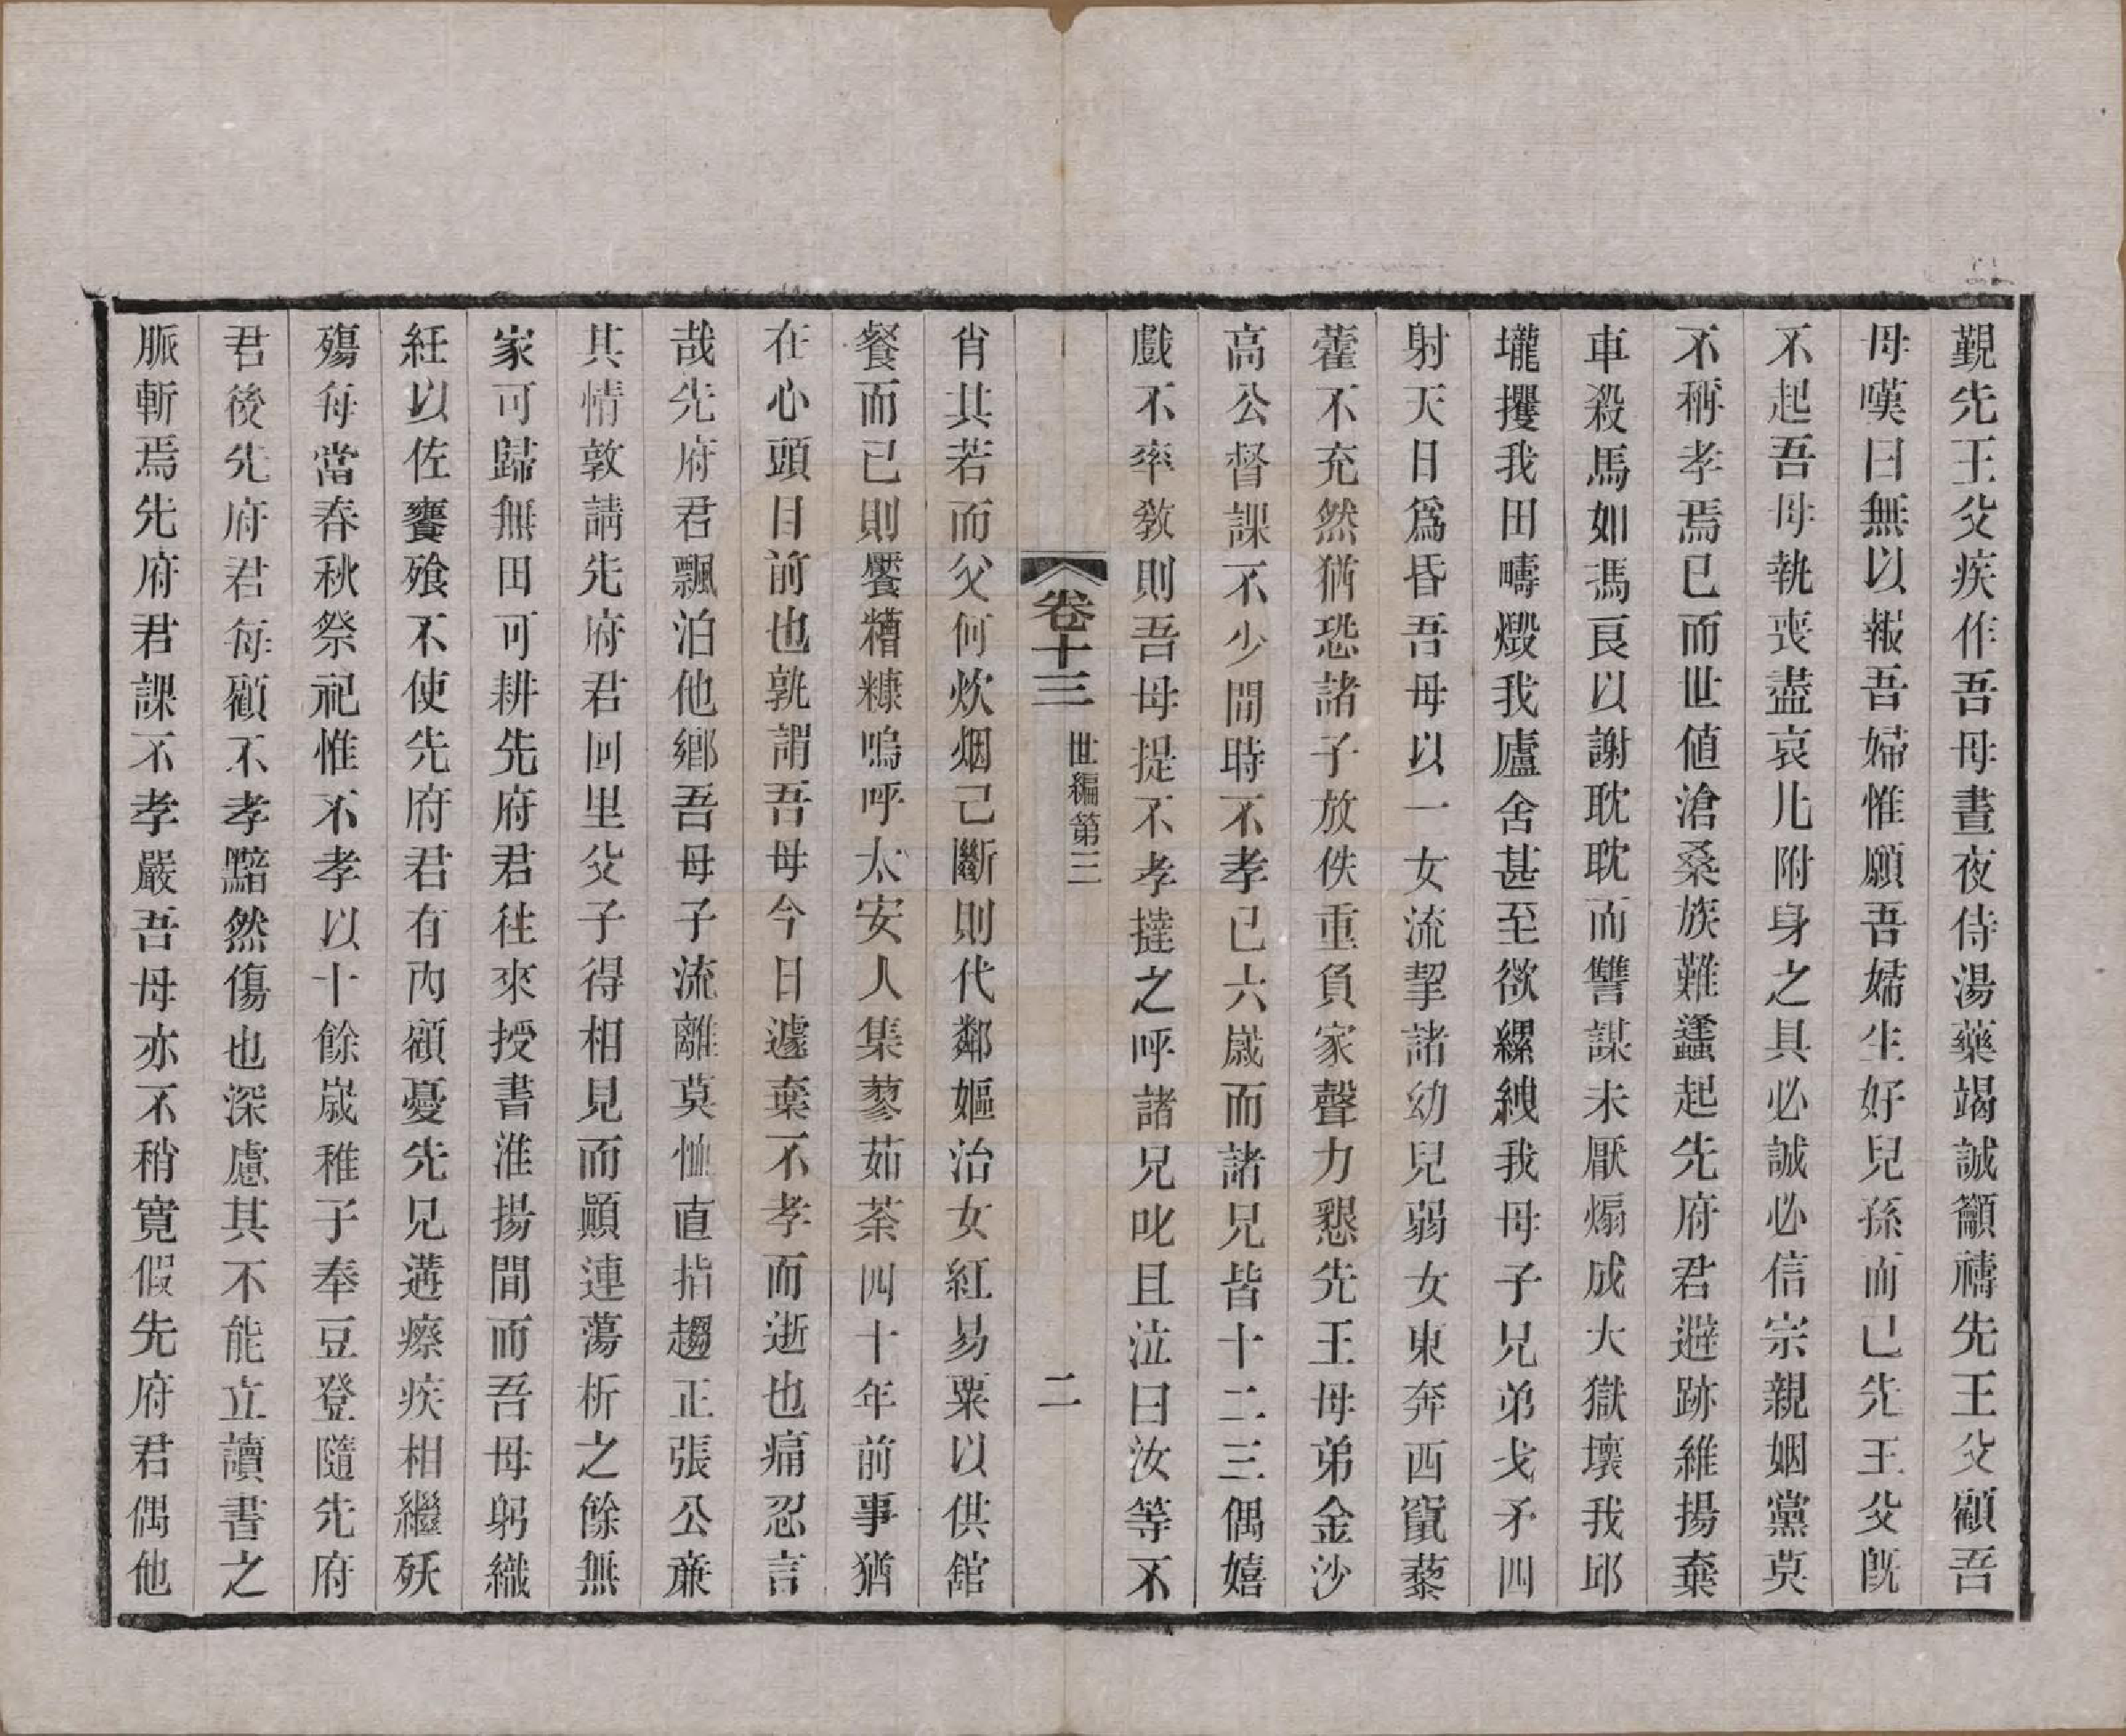 覲先王父疾作吾母晝夜侍湯藥竭誠籲禱先王父顧吾
母嘆曰無以報吾婦惟願吾婦生好兒孫而已先王父旣
不起吾母執喪盡哀凡附身之具必誠必信宗親姻黨莫
不稱孝焉已而世值滄桑族難蠭起先府君避跡維揚棄
車殺馬如馮良以謝耽耽而讐謀未厭煽成大獄壞我邱
壠攫我田疇燬我廬舍甚至欲縲絏我母子兄弟戈矛四
射天日爲昏吾母以一女流挈諸幼兒弱女東奔西竄藜
藿不充然猶恐諸子放佚重負家聲力懇先王母弟金沙
高公督課不少間時不孝已六歲而諸兄皆十二三偶嬉
戲不率敎則吾母提不孝撻之呼諸兄叱且泣曰汝等不
卷十三 世編第三 二
肖其若而父何炊烟已斷則代鄰嫗治女紅易粟以供舘
餐而已則饜糟糠嗚呼太安人集蓼茹荼四十年前事猶
在心頭目前也孰謂吾母今日遽棄不孝而逝也痛忍言
哉先府君飄泊他鄕吾母子流離莫恤直指趨正張公亷
其情敦請先府君回里父子得相見而顚連蕩析之餘無
家可歸無田可耕先府君往來授書淮揚間而吾母躬織
紝以佐饔飱不使先府君有內顧憂先兄遘瘵疾相繼殀
殤每當春秋祭祀惟不孝以十餘歲稚子奉豆登隨先府
君後先府君每顧不孝黯然傷也深慮其不能立讀書之
脈斬焉先府君課不孝嚴吾母亦不稍寬假先府君偶他